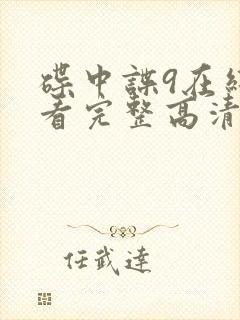 碟中諜9在線
看完整高清
任武達